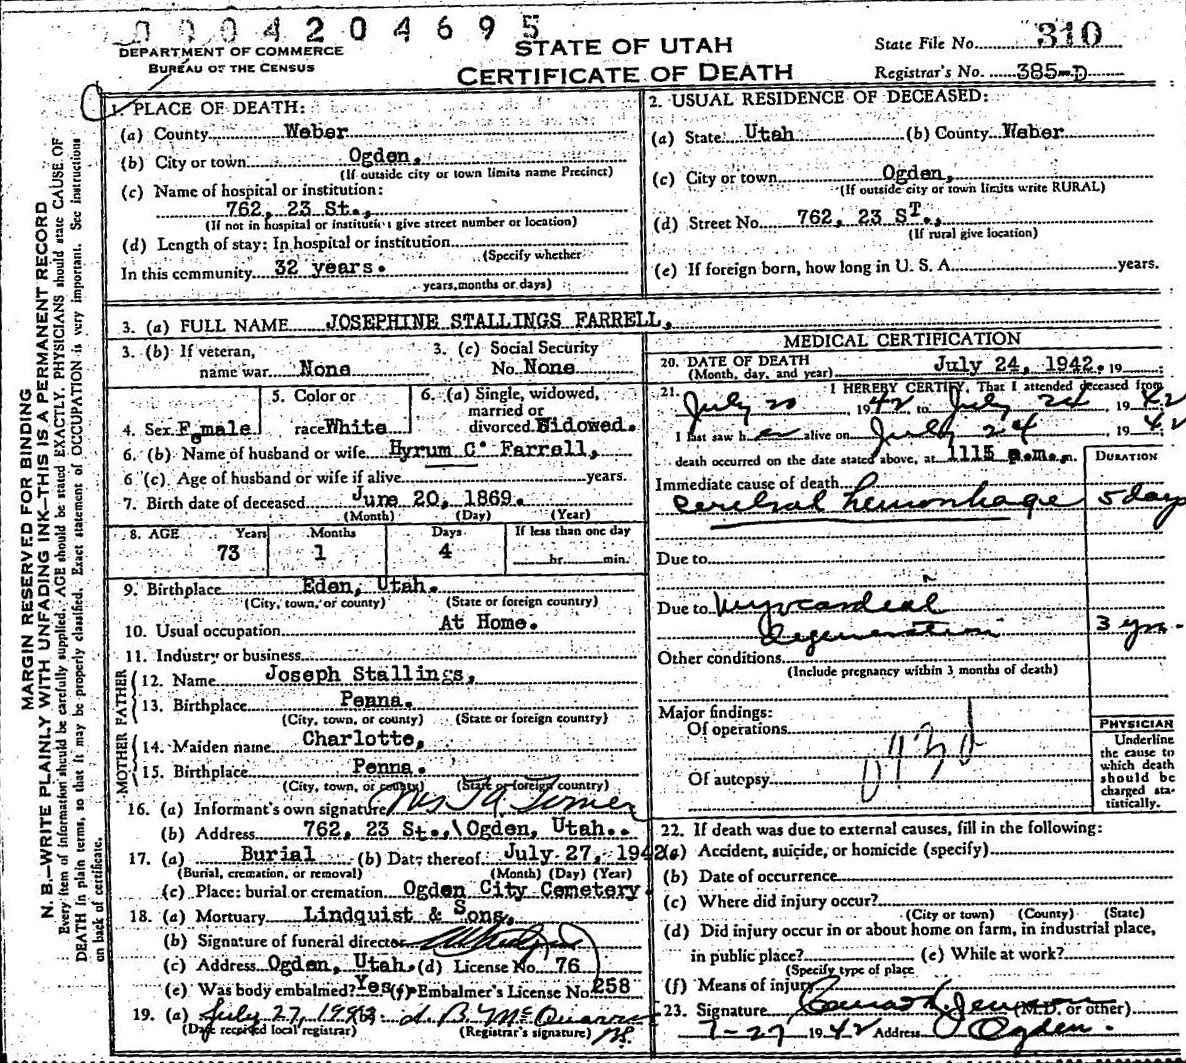 0004204695
DEPARTMENT OF COMMERCE
BUREAU OF THE CENSUS
STATE OF UTAH
CERTIFICATE OF DEATH
State File No. 310
Registrar's No. 385-D
MARGIN RESERVED FOR BINDING
N. B.—WRITE PLAINLY WITH UNFADING INK—THIS IS A PERMANENT RECORD
Every item of information should be carefully supplied. AGE should be stated EXACTLY. PHYSICIANS should state CAUSE OF
DEATH in plain terms, so that it may be properly classified. Exact statement of OCCUPATION is very important. See instruction
on back of certificate.
1. PLACE OF DEATH:
(a) County Weber
(b) City or town Ogden,
(If outside city or town limits name Precinct)
(c) Name of hospital or institution:
762, 23 St.,
(If not in hospital or institution give street number or location)
(d) Length of stay: In hospital or institution
(Specify whether
In this community 32 years.
years, months or days)
2. USUAL RESIDENCE OF DECEASED:
(a) State Utah (b) County Weber
(c) City or town Ogden,
(If outside city or town limits write RURAL)
(d) Street No. 762, 23 ST.,
(If rural give location)
(e) If foreign born, how long in U. S. A. years.
3. (a) FULL NAME JOSEPHINE STALLINGS FARRELL,
3. (b) If veteran, name war None
3. (c) Social Security No. None
4. Sex Female
5. Color or race White
6. (a) Single, widowed, married or divorced Widowed.
6. (b) Name of husband or wife Hyrum C. Farrell,
6 (c). Age of husband or wife if alive years.
7. Birth date of deceased June 20, 1869.
(Month) (Day) (Year)
8. AGE Years Months Days If less than one day
73 1 4 hr. min.
9. Birthplace Eden, Utah.
(City, town, or county) (State or foreign country)
10. Usual occupation At Home.
11. Industry or business
FATHER
12. Name Joseph Stallings,
13. Birthplace Penna.
(City, town, or county) (State or foreign country)
MOTHER
14. Maiden name Charlotte,
15. Birthplace Penna.
(City, town, or county) (State or foreign country)
16. (a) Informant's own signature Mrs
(b) Address 762, 23 St., Ogden, Utah..
17. (a) Burial (b) Date thereof July 27, 1942.
(Burial, cremation, or removal) (Month) (Day) (Year)
(c) Place: burial or cremation Ogden City Cemetery.
18. (a) Mortuary Lindquist & Sons.
(b) Signature of funeral director
(c) Address Ogden, Utah. (d) License No. 76
(e) Was body embalmed? Yes (f) Embalmer's License No. 258
19. (a) July 27, 1942
(Date received local registrar) (Registrar's signature)
MEDICAL CERTIFICATION
20. DATE OF DEATH July 24, 1942. 19
(Month, day, and year)
21. I HEREBY CERTIFY, That I attended deceased from
July 20, 1942 to July 24, 1942
I last saw her alive on July 24, 1942
death occurred on the date stated above, at 1115 m.
DURATION
Immediate cause of death
cerebral hemorrhage 5 days
Due to
Due to myocardial
degeneration 3 yrs.
Other conditions
(Include pregnancy within 3 months of death)
Major findings:
Of operations
Of autopsy
PHYSICIAN
Underline
the cause to
which death
should be
charged sta-
tistically.
22. If death was due to external causes, fill in the following:
(a) Accident, suicide, or homicide (specify)
(b) Date of occurrence
(c) Where did injury occur?
(City or town) (County) (State)
(d) Did injury occur in or about home on farm, in industrial place,
in public place? (e) While at work?
(Specify type of place
(f) Means of injury
23. Signature Jenson (M.D. or other)
7-27 1942 Address Ogden.